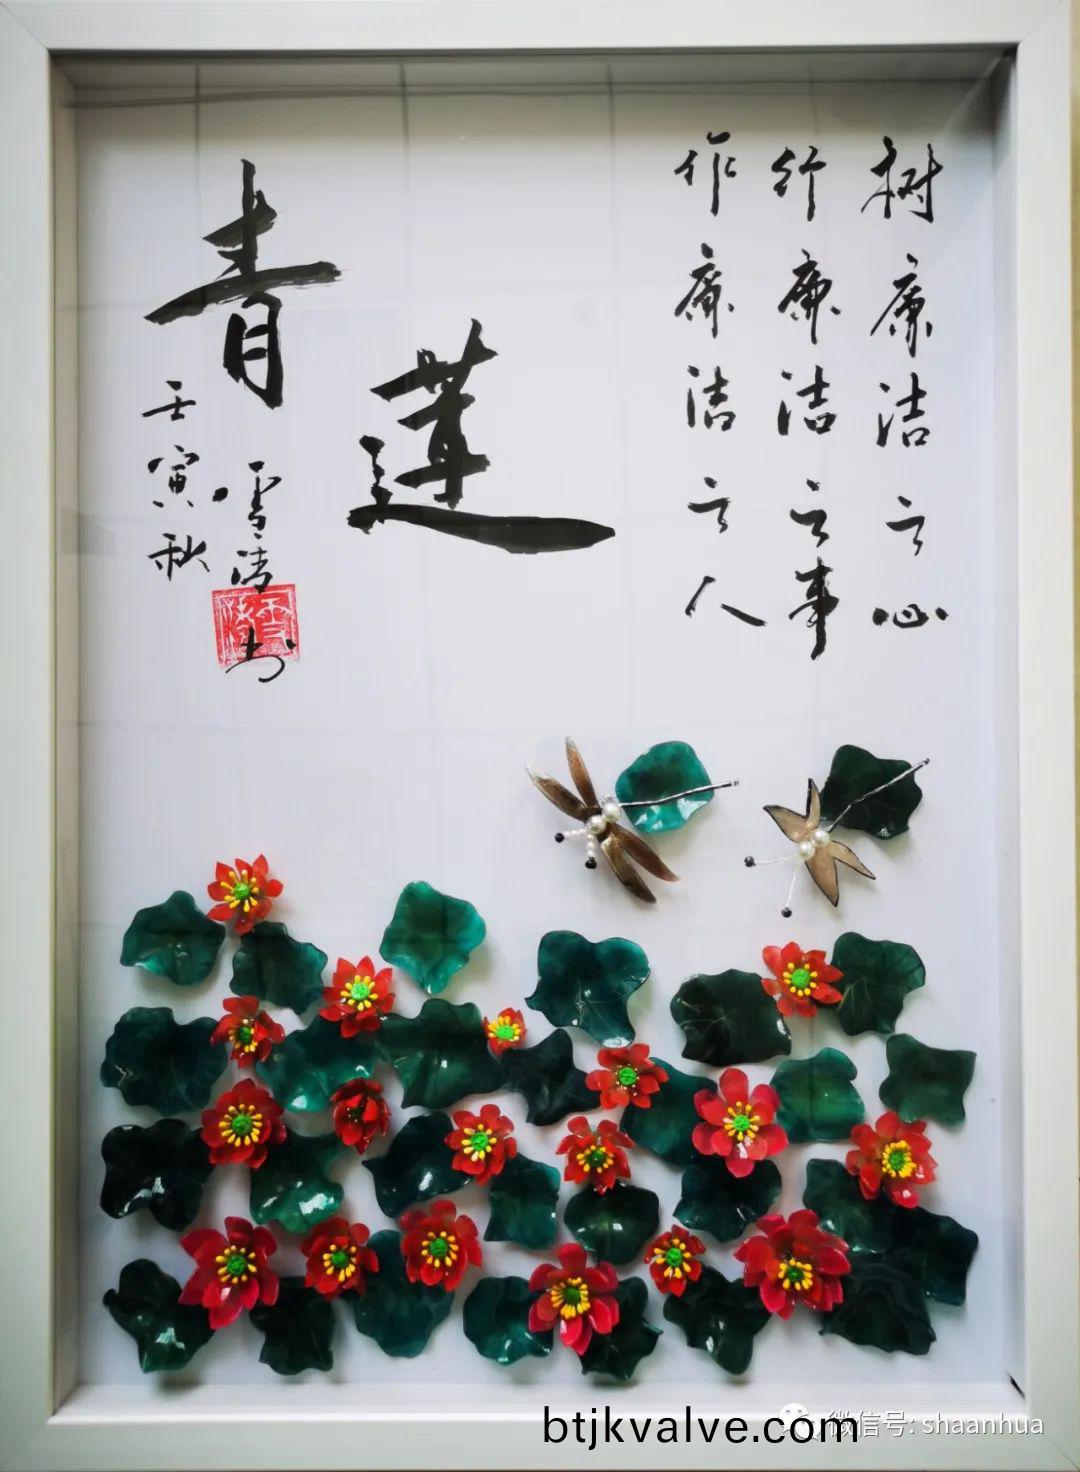 树廉洁之心
行廉洁之事
作廉洁之人
青莲
壬寅秋
雪洁书
微信号: shaanhua
btjkvalve.com